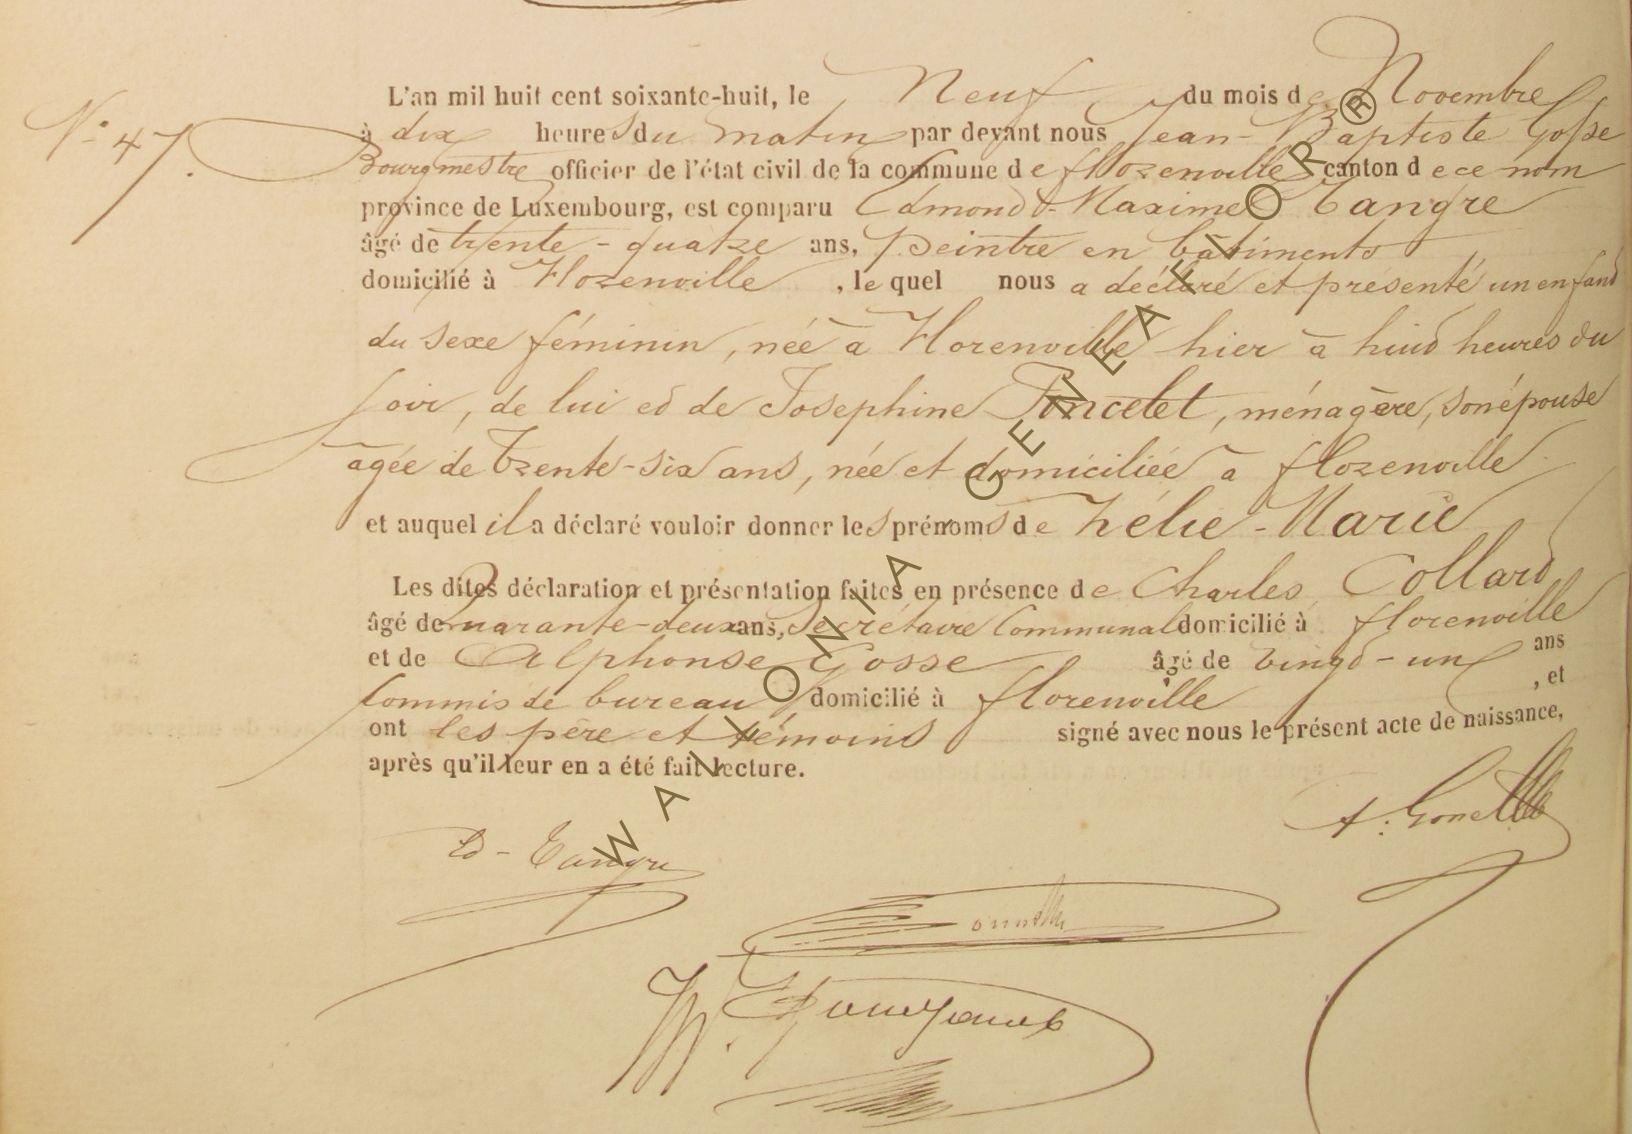 N° 47.
L'an mil huit cent soixante-huit, le Neuf du mois de Novembre
à dix heures du matin par devant nous Jean-Baptiste Gosse
Bourgmestre officier de l'état civil de la commune de florenville canton de ce nom
province de Luxembourg, est comparu Edmond-Maxime Tangre
âgé de trente-quatre ans, peintre en bâtiments
domicilié à Florenville, lequel nous a déclaré et présenté un enfant
du sexe féminin, née à Florenville hier à huit heures du
soir, de lui et de Josephine Poncelet, ménagère, son épouse
agée de trente-six ans, née et domiciliée à florenville
et auquel il a déclaré vouloir donner les prénoms de Zélie-Marie
Les dites déclaration et présentation faites en présence de Charles Collard
âgé de quarante-deux ans, Secrétaire Communal domicilié à florenville
et de Alphonse Gosse âgé de vingt-un ans
Commis de bureau domicilié à florenville, et
ont les père et témoins signé avec nous le présent acte de naissance,
après qu'il leur en a été fait lecture.
Ed-Tangre
WALLONIA GENEAFINOR ®